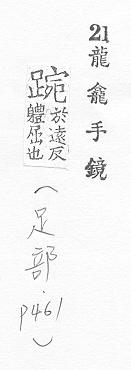 21龍龕手鏡
踠
於遠反
體屈也
(足部.p461)